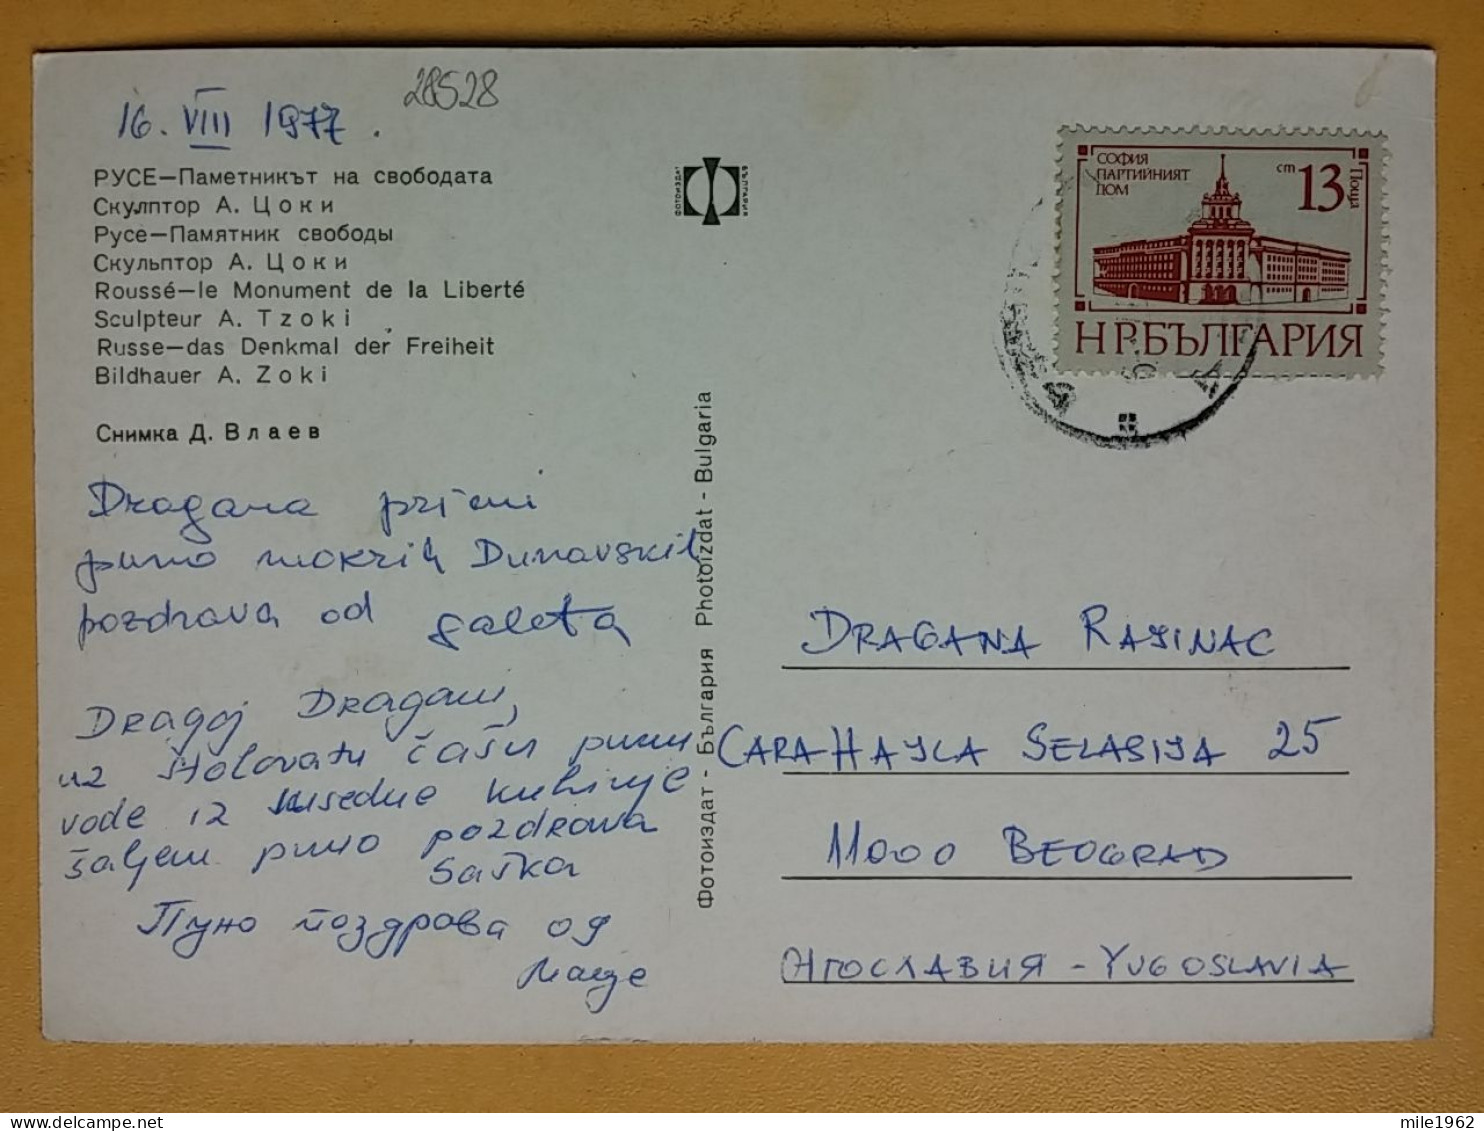 28528
16. VIII 1977.
РУСЕ—Паметникът на свободата
Скулптор А. Цоки
Русе—Памятник свободы
Скульптор А. Цоки
Roussé—le Monument de la Liberté
Sculpteur A. Tzoki
Russe—das Denkmal der Freiheit
Bildhauer A. Zoki
Снимка Д. Влаев
Dragana primi
puno mokrih Dunavskih
pozdrava od galeta
Dragoj Dragani,
uz štolovatu čašu punu
vode iz susedne kuhinje
šaljem puno pozdrava
Saška
Пуно поздрава од
Маје
ФОТОИЗДАТ
БЪЛГАРИЯ
Фотоиздат - България Photoizdat - Bulgaria
СОФИЯ
ПАРТИЙНИЯТ
ДОМ
ст 13
Поща
НР БЪЛГАРИЯ
DRAGANA RAJINAC
CARA HAJLA SELASIJA 25
11000 BEOGRAD
ЮГОСЛАВИЯ - YUGOSLAVIA
mile1962